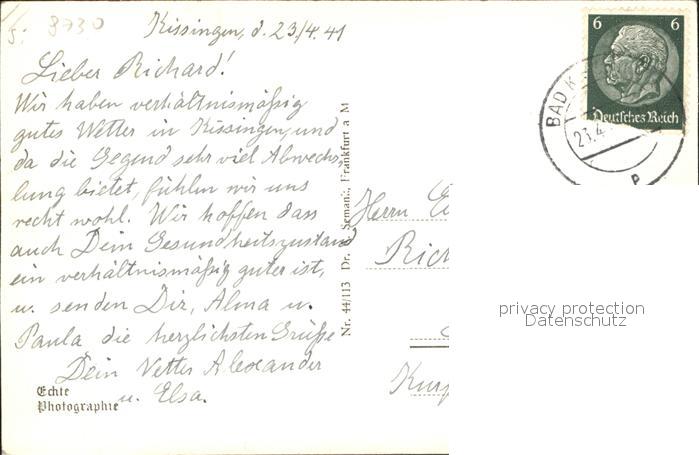 8730
Kissingen, d. 23/4. 41
Lieber Richard!
Wir haben verhältnismäßig
gutes Wetter in Kissingen, und
da die Gegend sehr viel Abwechs-
lung bietet, fühlen wir uns
recht wohl. Wir hoffen dass
auch Dein Gesundheitszustand
ein verhältnismäßig guter ist,
u. senden Dir, Alma u.
Paula die herzlichsten Grüße
Dein Vetter Alexander
u. Elsa.
Echte
Photographie
Nr. 44/113 Dr. Semank, Frankfurt a M
6 6
Deutsches Reich
BAD K
23.4
Herrn
Rich
Kurp
privacy protection
Datenschutz